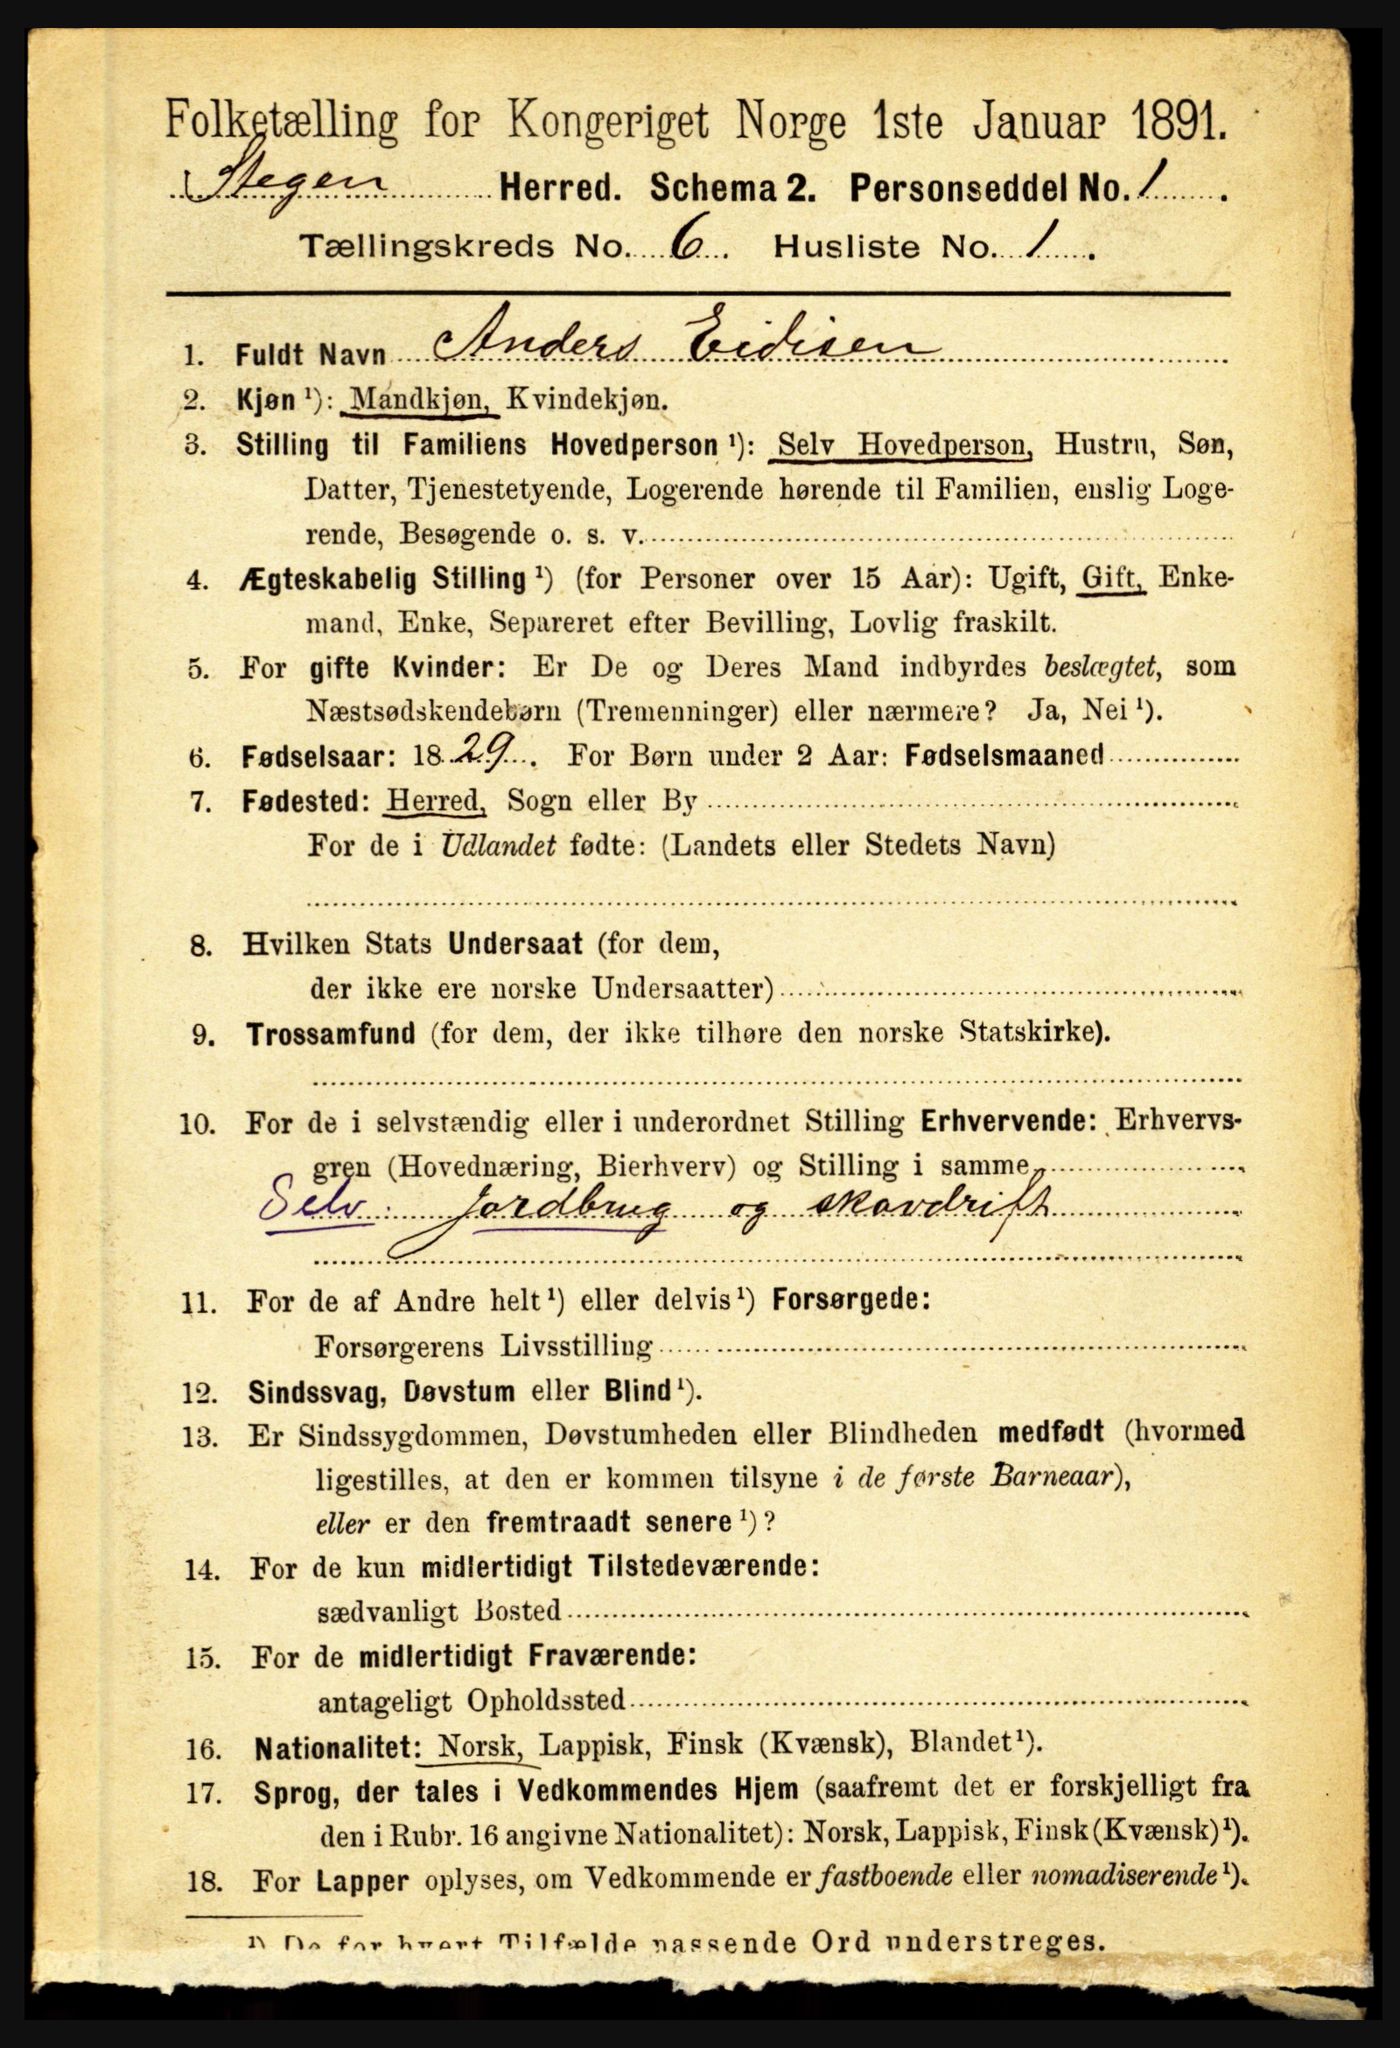 Folketælling for Kongeriget Norge 1ste Januar 1891.
Stegen Herred. Schema 2. Personseddel No. 1.
Tællingskreds No. 6. Husliste No. 1.
1. Fuldt Navn Anders Eidisen
2. Kjøn ¹): Mandkjøn, Kvindekjøn.
3. Stilling til Familiens Hovedperson ¹): Selv Hovedperson, Hustru, Søn,
Datter, Tjenestetyende, Logerende hørende til Familien, enslig Loge-
rende, Besøgende o. s. v.
4. Ægteskabelig Stilling ¹) (for Personer over 15 Aar): Ugift, Gift, Enke-
mand, Enke, Separeret efter Bevilling, Lovlig fraskilt.
5. For gifte Kvinder: Er De og Deres Mand indbyrdes beslægtet, som
Næstsødskendebørn (Tremenninger) eller nærmere? Ja, Nei ¹).
6. Fødselsaar: 1829. For Børn under 2 Aar: Fødselsmaaned
7. Fødested: Herred, Sogn eller By
For de i Udlandet fødte: (Landets eller Stedets Navn)
8. Hvilken Stats Undersaat (for dem,
der ikke ere norske Undersaatter)
9. Trossamfund (for dem, der ikke tilhøre den norske Statskirke).
10. For de i selvstændig eller i underordnet Stilling Erhvervende: Erhvervs-
gren (Hovednæring, Bierhverv) og Stilling i samme
Selv: Jordbrug og skovdrift
11. For de af Andre helt ¹) eller delvis ¹) Forsørgede:
Forsørgerens Livsstilling
12. Sindssvag, Døvstum eller Blind ¹).
13. Er Sindssygdommen, Døvstumheden eller Blindheden medfødt (hvormed
ligestilles, at den er kommen tilsyne i de første Barneaar),
eller er den fremtraadt senere ¹)?
14. For de kun midlertidigt Tilstedeværende:
sædvanligt Bosted
15. For de midlertidigt Fraværende:
antageligt Opholdssted
16. Nationalitet: Norsk, Lappisk, Finsk (Kvænsk), Blandet ¹).
17. Sprog, der tales i Vedkommendes Hjem (saafremt det er forskjelligt fra
den i Rubr. 16 angivne Nationalitet): Norsk, Lappisk, Finsk (Kvænsk) ¹).
18. For Lapper oplyses, om Vedkommende er fastboende eller nomadiserende ¹).
¹) De for hvert Tilfælde passende Ord understreges.